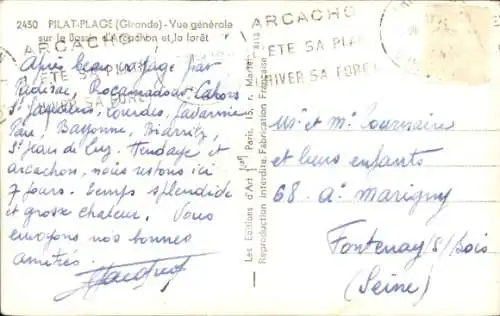 2450 PILAT-PLAGE (Gironde) - Vue générale
sur le Bassin d'Arcachon et la forêt
ARCACHO
ÉTÉ SA PLA
HIVER SA FORÊT
ARCACHO
ÉTÉ SA PLA
HIVER SA FORET
Après beau voyage par
Padirac, Rocamadour, Cahors
Lourdes, Gavarnie
Pau, Bayonne, Biarritz,
St Jean de Luz, Hendaye et
arcachon, nous restons ici
7 jours. Temps splendide
et grosse chaleur. Vous
envoyons nos bonnes
amitiés.
Les Editions d'Art Paris, 15, r. Martel
Reproduction interdite. Fabrication Française
Mr et Me
et leurs enfants
68. Ae Marigny
Fontenay s/s Bois
(Seine)